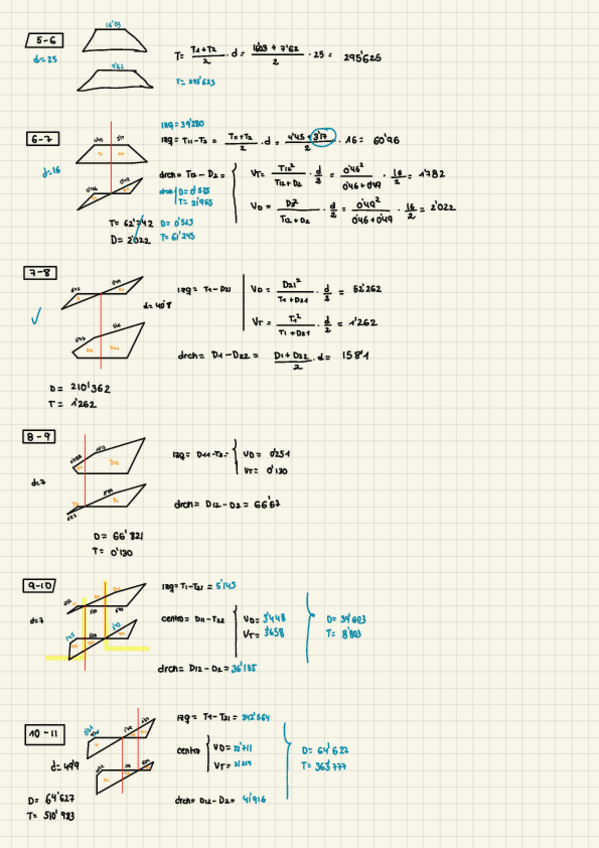 5-6
d=25
T= T1+T2/2 · d = 16'03 + 7'62/2 · 25 = 295'625
T= 295'625
6-7
d=16
izq = 39'280
izq = T11-T2 = T11+T2/2 · d = 4'45 + 3'17/2 · 16 = 60'96
drch = T12 - D2 =
VT = T12²/T12+D2 · d/2 = 0'46²/0'46+0'49 · 16/2 = 1'782
VD = D2²/T12+D2 · d/2 = 0'49²/0'46+0'49 · 16/2 = 2'022
T= 62'742
D= 2'022
D= 0'525
T= 61'245
7-8
d= 40'8
izq = T1-D21
VD = D21²/T1+D21 · d/2 = 52'262
VT = T1²/T1+D21 · d/2 = 1'262
drch = D1-D22 = D1+D22/2 · d = 158'1
D= 210'362
T= 1'262
8-9
d=7
izq = D11-T2 =
VD = 0'251
VT = 0'130
drch = D12-D2 = 66'57
D= 66'821
T= 0'130
9-10
d=7
izq = T1-T21 = 5'145
centro = D11-T22
VD = 3'448
VT = 3'658
D= 39'603
T= 8'803
drch = D12-D2 = 36'155
10-11
d= 49'9
izq = T1-T21 = 342'564
centro
VD = 22'711
VT = 21'214
D= 64'627
T= 363'777
drch = D12-D2 = 41'916
D= 64'627
T= 510'923